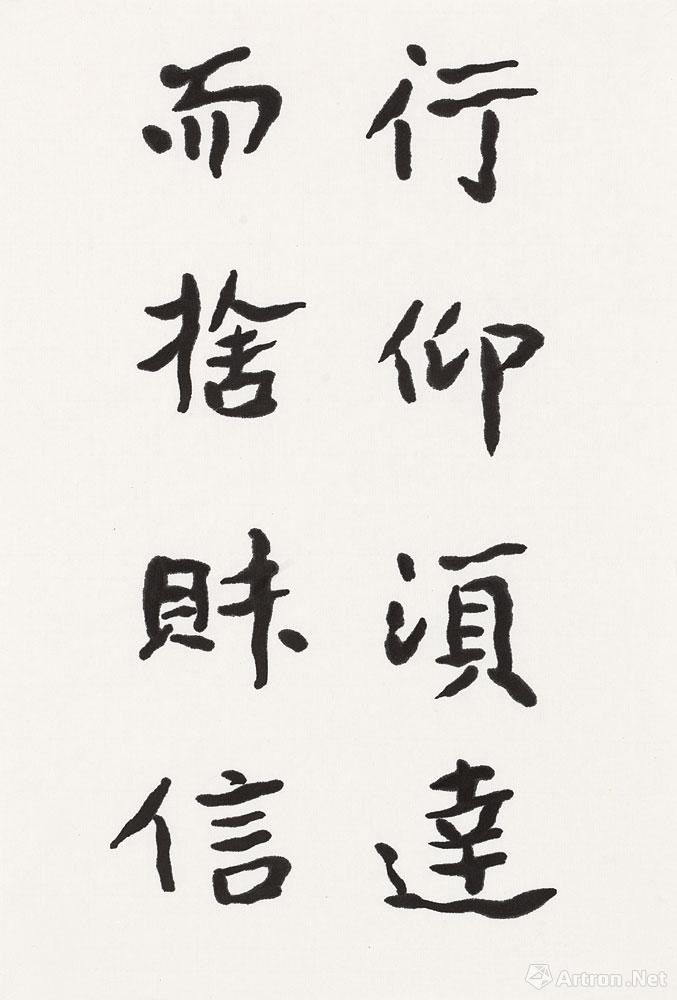 行仰須達
而捨財信
Artron.Net